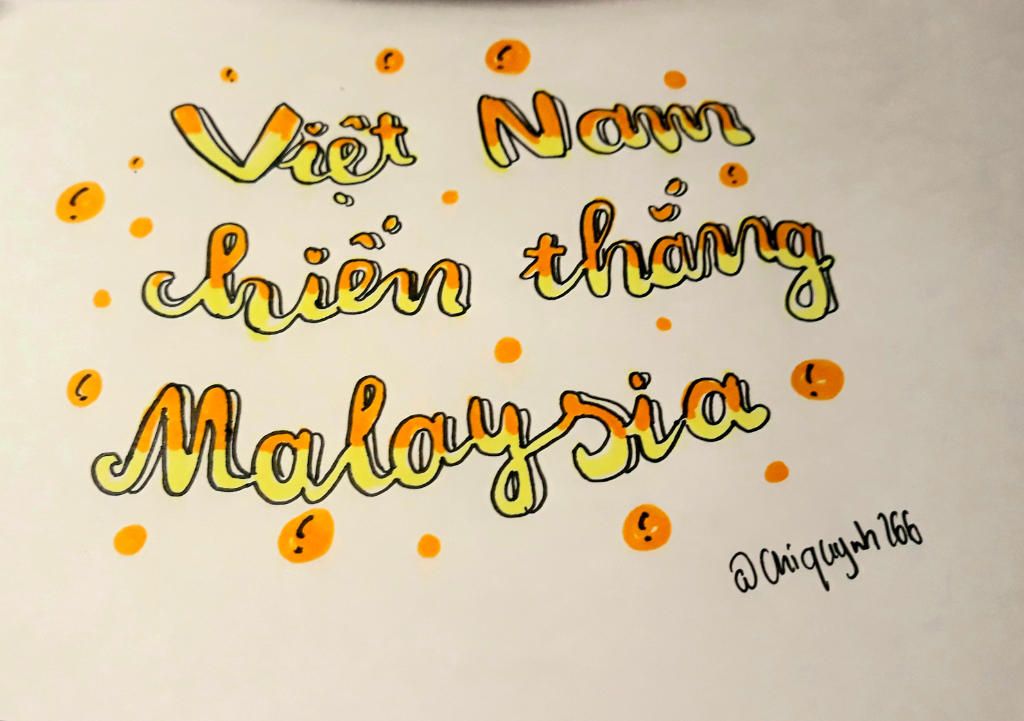 Việt Nam
chiến thắng
Malaysia
@chiquynh266